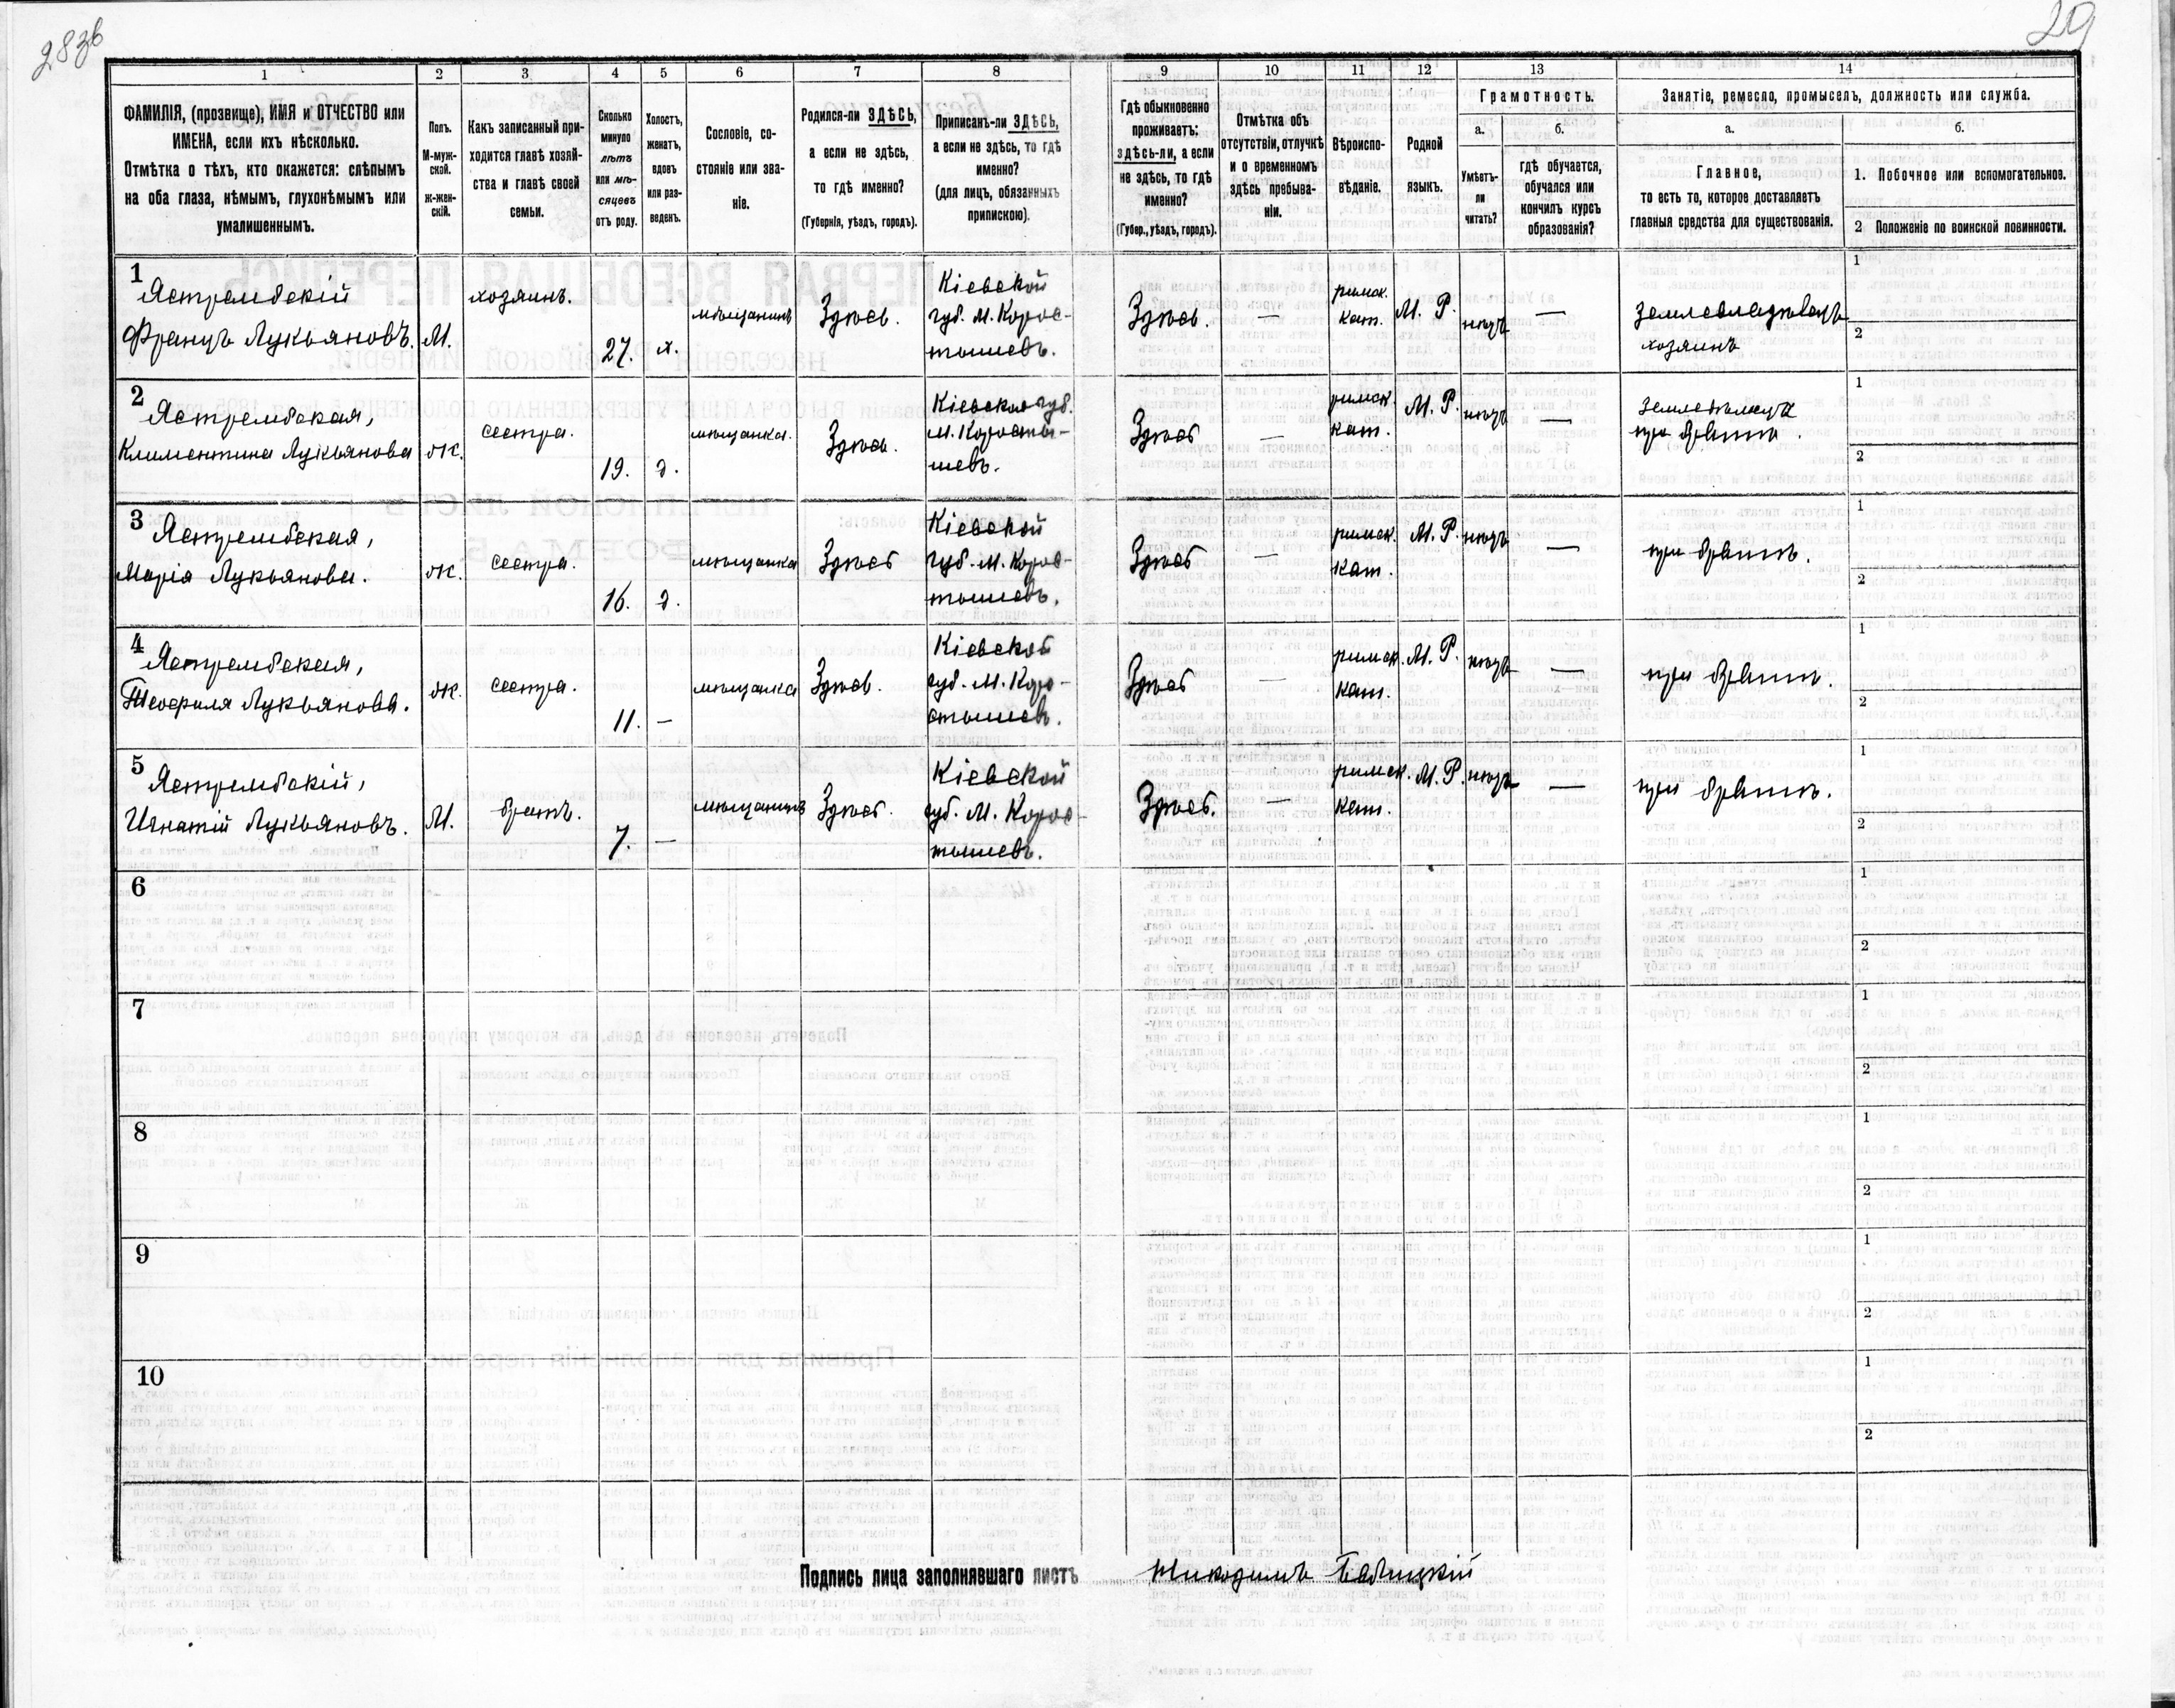 283б
29
1
2
3
4
5
6
7
8
9
10
11
12
13
14
ФАМИЛІЯ, (прозвище), ИМЯ и ОТЧЕСТВО или
ИМЕНА, если ихъ нѣсколько.
Отмѣтка о тѣхъ, кто окажется: слѣпымъ
на оба глаза, нѣмымъ, глухонѣмымъ или
умалишеннымъ.
Полъ.
М-муж-
ской.
ж-жен-
скій.
Какъ записанный при-
ходится главѣ хозяй-
ства и главѣ своей
семьи.
Сколько
минуло
лѣтъ
или мѣ-
сяцевъ
отъ роду.
Холостъ,
женатъ,
вдовъ
или раз-
веденъ.
Сословіе, со-
стояніе или зва-
ніе.
Родился-ли ЗДѢСЬ,
а если не здѣсь,
то гдѣ именно?
(Губернія, уѣздъ, городъ).
Приписанъ-ли ЗДѢСЬ,
а если не здѣсь, то гдѣ
именно?
(для лицъ, обязанныхъ
припискою).
Гдѣ обыкновенно
проживаетъ:
здѣсь-ли, а если
не здѣсь, то гдѣ
именно?
(Губер., уѣздъ, городъ).
Отмѣтка объ
отсутствіи, отлучкѣ
и о временномъ
здѣсь пребыва-
ніи.
Вѣроиспо-
вѣданіе.
Родной
языкъ.
Грамотность.
а.
Умѣетъ-
ли
читать?
б.
гдѣ обучается,
обучался или
кончилъ курсъ
образованія?
Занятіе, ремесло, промыселъ, должность или служба.
а.
Главное,
то есть то, которое доставляетъ
главныя средства для существованія.
б.
1. Побочное или вспомогательное.
2 Положеніе по воинской повинности.
1
Ястрембскій
Францъ Лукьяновъ.
М.
хозяинъ.
27.
х.
мѣщанинъ
Здѣсь.
Кіевской
губ. м. Корос-
тышевъ.
Здѣсь.
—
римск.
кат.
М. Р.
нѣтъ
—
Землевладѣлецъ
хозяинъ
1
2
2
Ястрембская,
Климентина Лукьянова
ж.
сестра.
19.
д.
мѣщанка.
Здѣсь.
Кіевской губ.
м. Коросты-
шевъ.
Здѣсь
—
римск.
кат.
М. Р.
нѣтъ
—
при братѣ.
1
2
3
Ястрембская,
Марія Лукьянова.
ж.
сестра.
16.
д.
мѣщанка
Здѣсь
Кіевской
губ. м. Корос-
тышевъ.
Здѣсь
—
римск.
кат.
М. Р.
нѣтъ
—
при братѣ.
1
2
4
Ястрембская,
Теофиля Лукьянова.
ж.
сестра.
11.
—
мѣщанка
Здѣсь.
Кіевской
губ. м. Коро-
стышевъ.
Здѣсь
—
римск.
кат.
М. Р.
нѣтъ
—
при братѣ.
1
2
5
Ястрембскій,
Игнатій Лукьяновъ.
М.
братъ.
7.
—
мѣщанинъ
Здѣсь.
Кіевской
губ. м. Корос-
тышевъ.
Здѣсь.
—
римск.
кат.
М. Р.
нѣтъ
—
при братѣ.
1
2
6
1
2
7
1
2
8
1
2
9
1
2
10
1
2
Подпись лица заполнявшаго листъ
Никодимъ Бабицкій